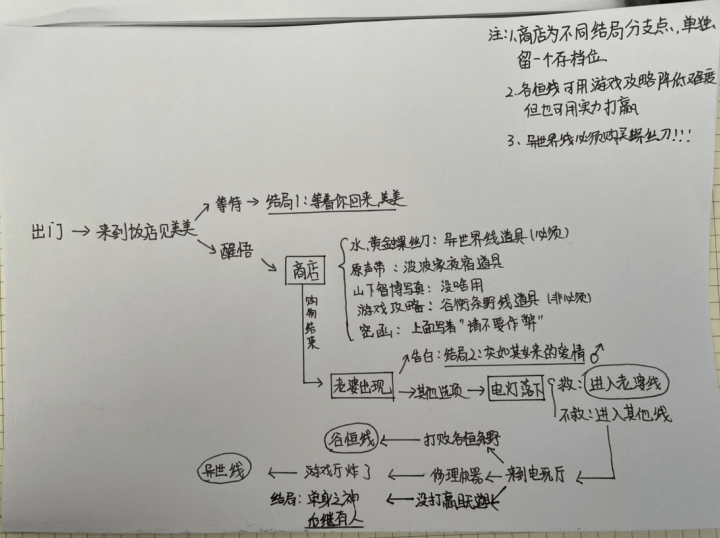 注:1.商店为不同结局分支点,单独
留一个存档位
2.谷恒线可用游戏攻略降低难度
但也可用实力打赢
3、异世界线必须购买螺丝刀!!!
出门→来到饭店见美美
等待→结局1:等着你回来,美美
醒悟
商店
水,黄金螺丝刀:异世界线道具(必须)
原声带:波波家夜宿道具
山下智博写真:没啥用
游戏攻略:谷衡条野线道具(非必须)
密函:上面写着"请不要作弊"
购物结束
老婆出现
告白:结局2:突如其来的爱情♂
→其他选项→电灯落下
救:进入老婆线
不救:进入其他线
谷恒线←打败谷恒条野
异世线←游戏厅炸了←修理机器←来到电玩厅
结局:单身之神←没打赢且无道具
后继有人